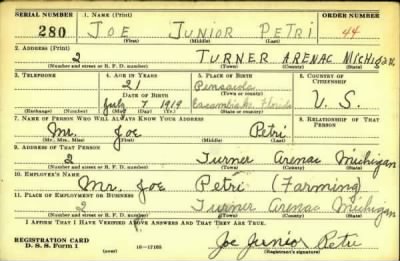 SERIAL NUMBER 1. NAME (Print) ORDER NUMBER
280 JOE JUNIOR PETRI 44
(First) (Middle) (Last)
2. ADDRESS (Print)
2 TURNER ARENAC MICHIGAN
(Number and street or R. F. D. number) (Town) (County) (State)
3. TELEPHONE 4. AGE IN YEARS 5. PLACE OF BIRTH 6. COUNTRY OF CITIZENSHIP
21 Pensacola
DATE OF BIRTH (Town or county)
July 7 1919 Escambia Florida U. S.
(Exchange) (Number) (Mo.) (Day) (Yr.) (State or country)
7. NAME OF PERSON WHO WILL ALWAYS KNOW YOUR ADDRESS 8. RELATIONSHIP OF THAT PERSON
Mr. Joe Petri
(Mr., Mrs., Miss) (First) (Middle) (Last)
9. ADDRESS OF THAT PERSON
2 Turner Arenac Michigan
(Number and street or R. F. D. number) (Town) (County) (State)
10. EMPLOYER'S NAME
Mr. Joe Petri (Farming)
11. PLACE OF EMPLOYMENT OR BUSINESS
2 Turner Arenac Michigan
(Number and street or R. F. D. number) (Town) (County) (State)
I AFFIRM THAT I HAVE VERIFIED ABOVE ANSWERS AND THAT THEY ARE TRUE.
REGISTRATION CARD
D. S. S. Form 1 16-17105 Joe Junior Petri
(over) (Registrant's signature)